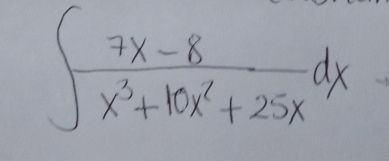 ∫ (7x - 8)/(x³ + 10x² + 25x) dx